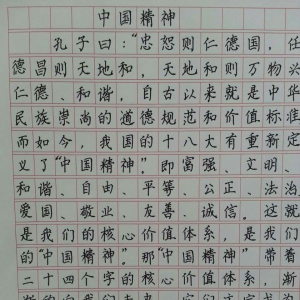 中国精神
孔子曰：“忠恕则仁德国，任
德昌则天地和，天地和则万物兴
仁德、和谐，自古以来就是中华
民族崇尚的道德规范和价值标准
而如今，我国的十八大有重新定
义了“中国精神”。即富强、文明、
和谐、自由、平等、公正、法治
爱国、敬业、友善、诚信。这就
是我们的核心价值体系，是我们
的“中国精神”。那“中国精神”带着
二十四个字的核心价值体系，渐
渐的向我们走来